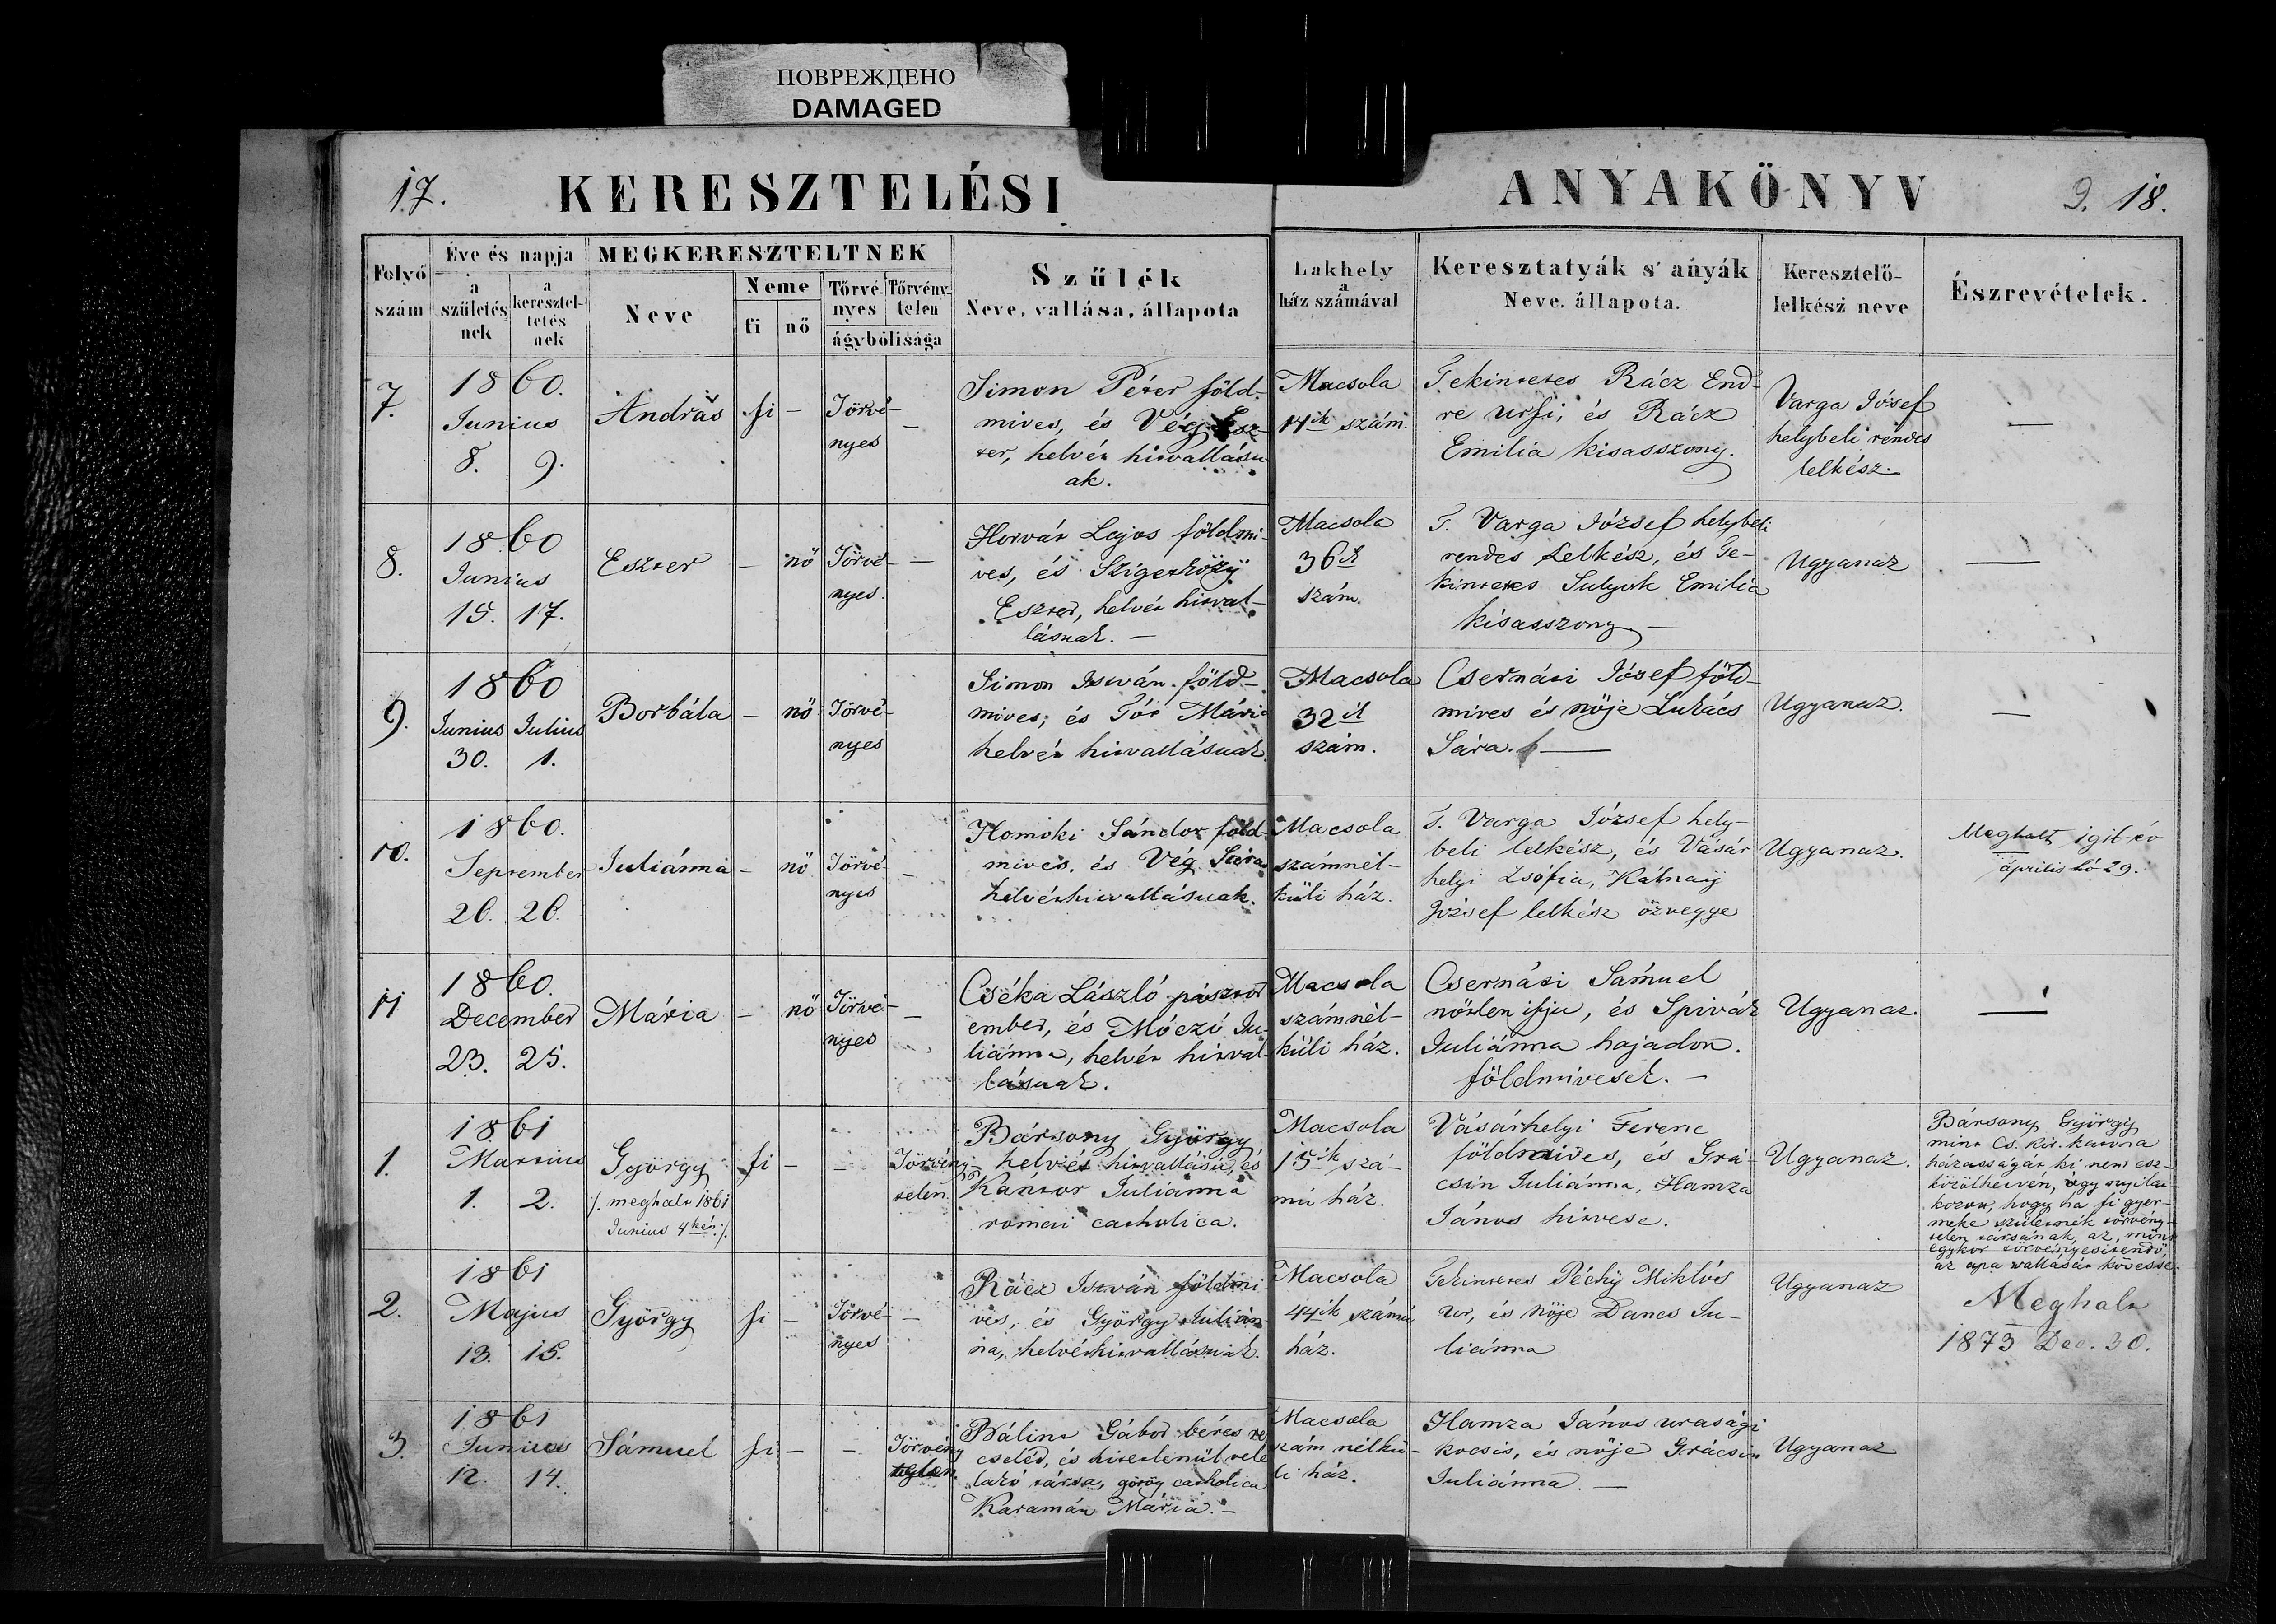 ПОВРЕЖДЕНО
DAMAGED
17.
KERESZTELÉSI
ANYAKÖNYV
9. 18.
Folyó szám
Éve és napja
a születésnek
a kereszteltetésnek
MEGKERESZTELTNEK
Neve
Neme
fi
nő
Törvényes
Törvénytelen
ágybólisága
Szülék
Neve, vallása, állapota
Lakhely
a
ház számával
Keresztatyák s' anyák
Neve. állapota.
Keresztelő-
lelkész neve
Észrevételek.
7.
1860.
Junius
8. 9.
András
fi -
Törvé-
nyes
-
Simon Péter föld-
mives, és Vég Esz-
ter, helvét hitvallásu
ak.
Macsola
14ik szám.
Tekintetes Rácz End-
re urfi, és Rácz
Emilia kisasszony.
Varga József
helybeli rendes
lelkész.
—
8.
1860
Junius
15. 17.
Eszter
- nő
Törvé-
nyes.
-
Horvát Lajos földmi-
ves, és Szigetközÿ
Eszter, helvét hitval-
lásuak. -
Macsola
36ik
szám.
T. Varga József helybeli
rendes Lelkész, és Te-
kintetes Sulyok Emilia
kisasszony -
Ugyanaz
—
9.
1860
Junius Julius
30. 1.
Borbála
- nő
Törvé-
nyes
Simon István föld-
mives, és Tót Mária
helvét hitvallásuak.
Macsola
32ik
szám.
Csernáti József föld-
mives és nöje Lukács
Sára. —
Ugyanaz.
—
10.
1860.
September
26. 26.
Juliánna
- nő
Törvé-
nyes
-
Homoki Sándor föld-
mives, és Vég Sára
helvéthitvallásuak.
Macsola
számnél-
küli ház.
T. Varga József hely-
beli lelkész, és Vásár
helyi Zsofia, Kálnaÿ
József lelkész özvegye
Ugyanaz.
Meghalt 1916 év
április hó 29.
11
1860.
December
23. 25.
Mária
- nő
Törvé-
nyes
-
Cséka László pásztor
ember, és Móczó Ju-
liánna, helvét hitval-
lásuak.
Macsola
számnél-
küli ház.
Csernáti Sámuel
nőtlen ifju, és Spivák
Juliánna hajadon.
földmivesek. -
Ugyanaz.
—
1.
1861
Martius
1. 2.
György
/. meghalt 1861
Junius 4kén ./.
fi -
-
Törvény-
telen.
Bársony György
helvét hitvallásu, és
Kantor Juliánna
romai catholica.
Macsola
15ik szá-
mú ház.
Vásárhelyi Ferenc
földmives, és Grá-
csin Juliánna, Hamza
János hitvese.
Ugyanaz.
Bársony György
mint Cs. kir. katona
házasságát ki nem esz-
közölhetvén, úgy nyilat-
kozott, hogy ha fi gyer-
meke születnék törvény-
telen társának, az, mint
egykor törvényesitendő
az apa vallását kövesse.
2.
1861
Majus
13. 15.
György
fi -
Törvé-
nyes
-
Rácz István földmi
ves, és György Julián
na, helvéthitvallásuak.
Macsola
44ik számú
ház.
Tekintetes Péchÿ Miklós
ur, és nője Dancs Ju-
liánna
Ugyanaz
Meghalt
1873 Dec. 30.
3.
1861
Junius
12. 14.
Sámuel
fi -
-
Törvény
telen.
Bálint Gábor béres
cseléd, és hitetlenül vele
lakó társa, görög catholica
Karamán Mária. -
Macsola
szám nélkü-
li ház.
Hamza János urasági
kocsis, és nője Grácsin
Juliánna. -
Ugyanaz